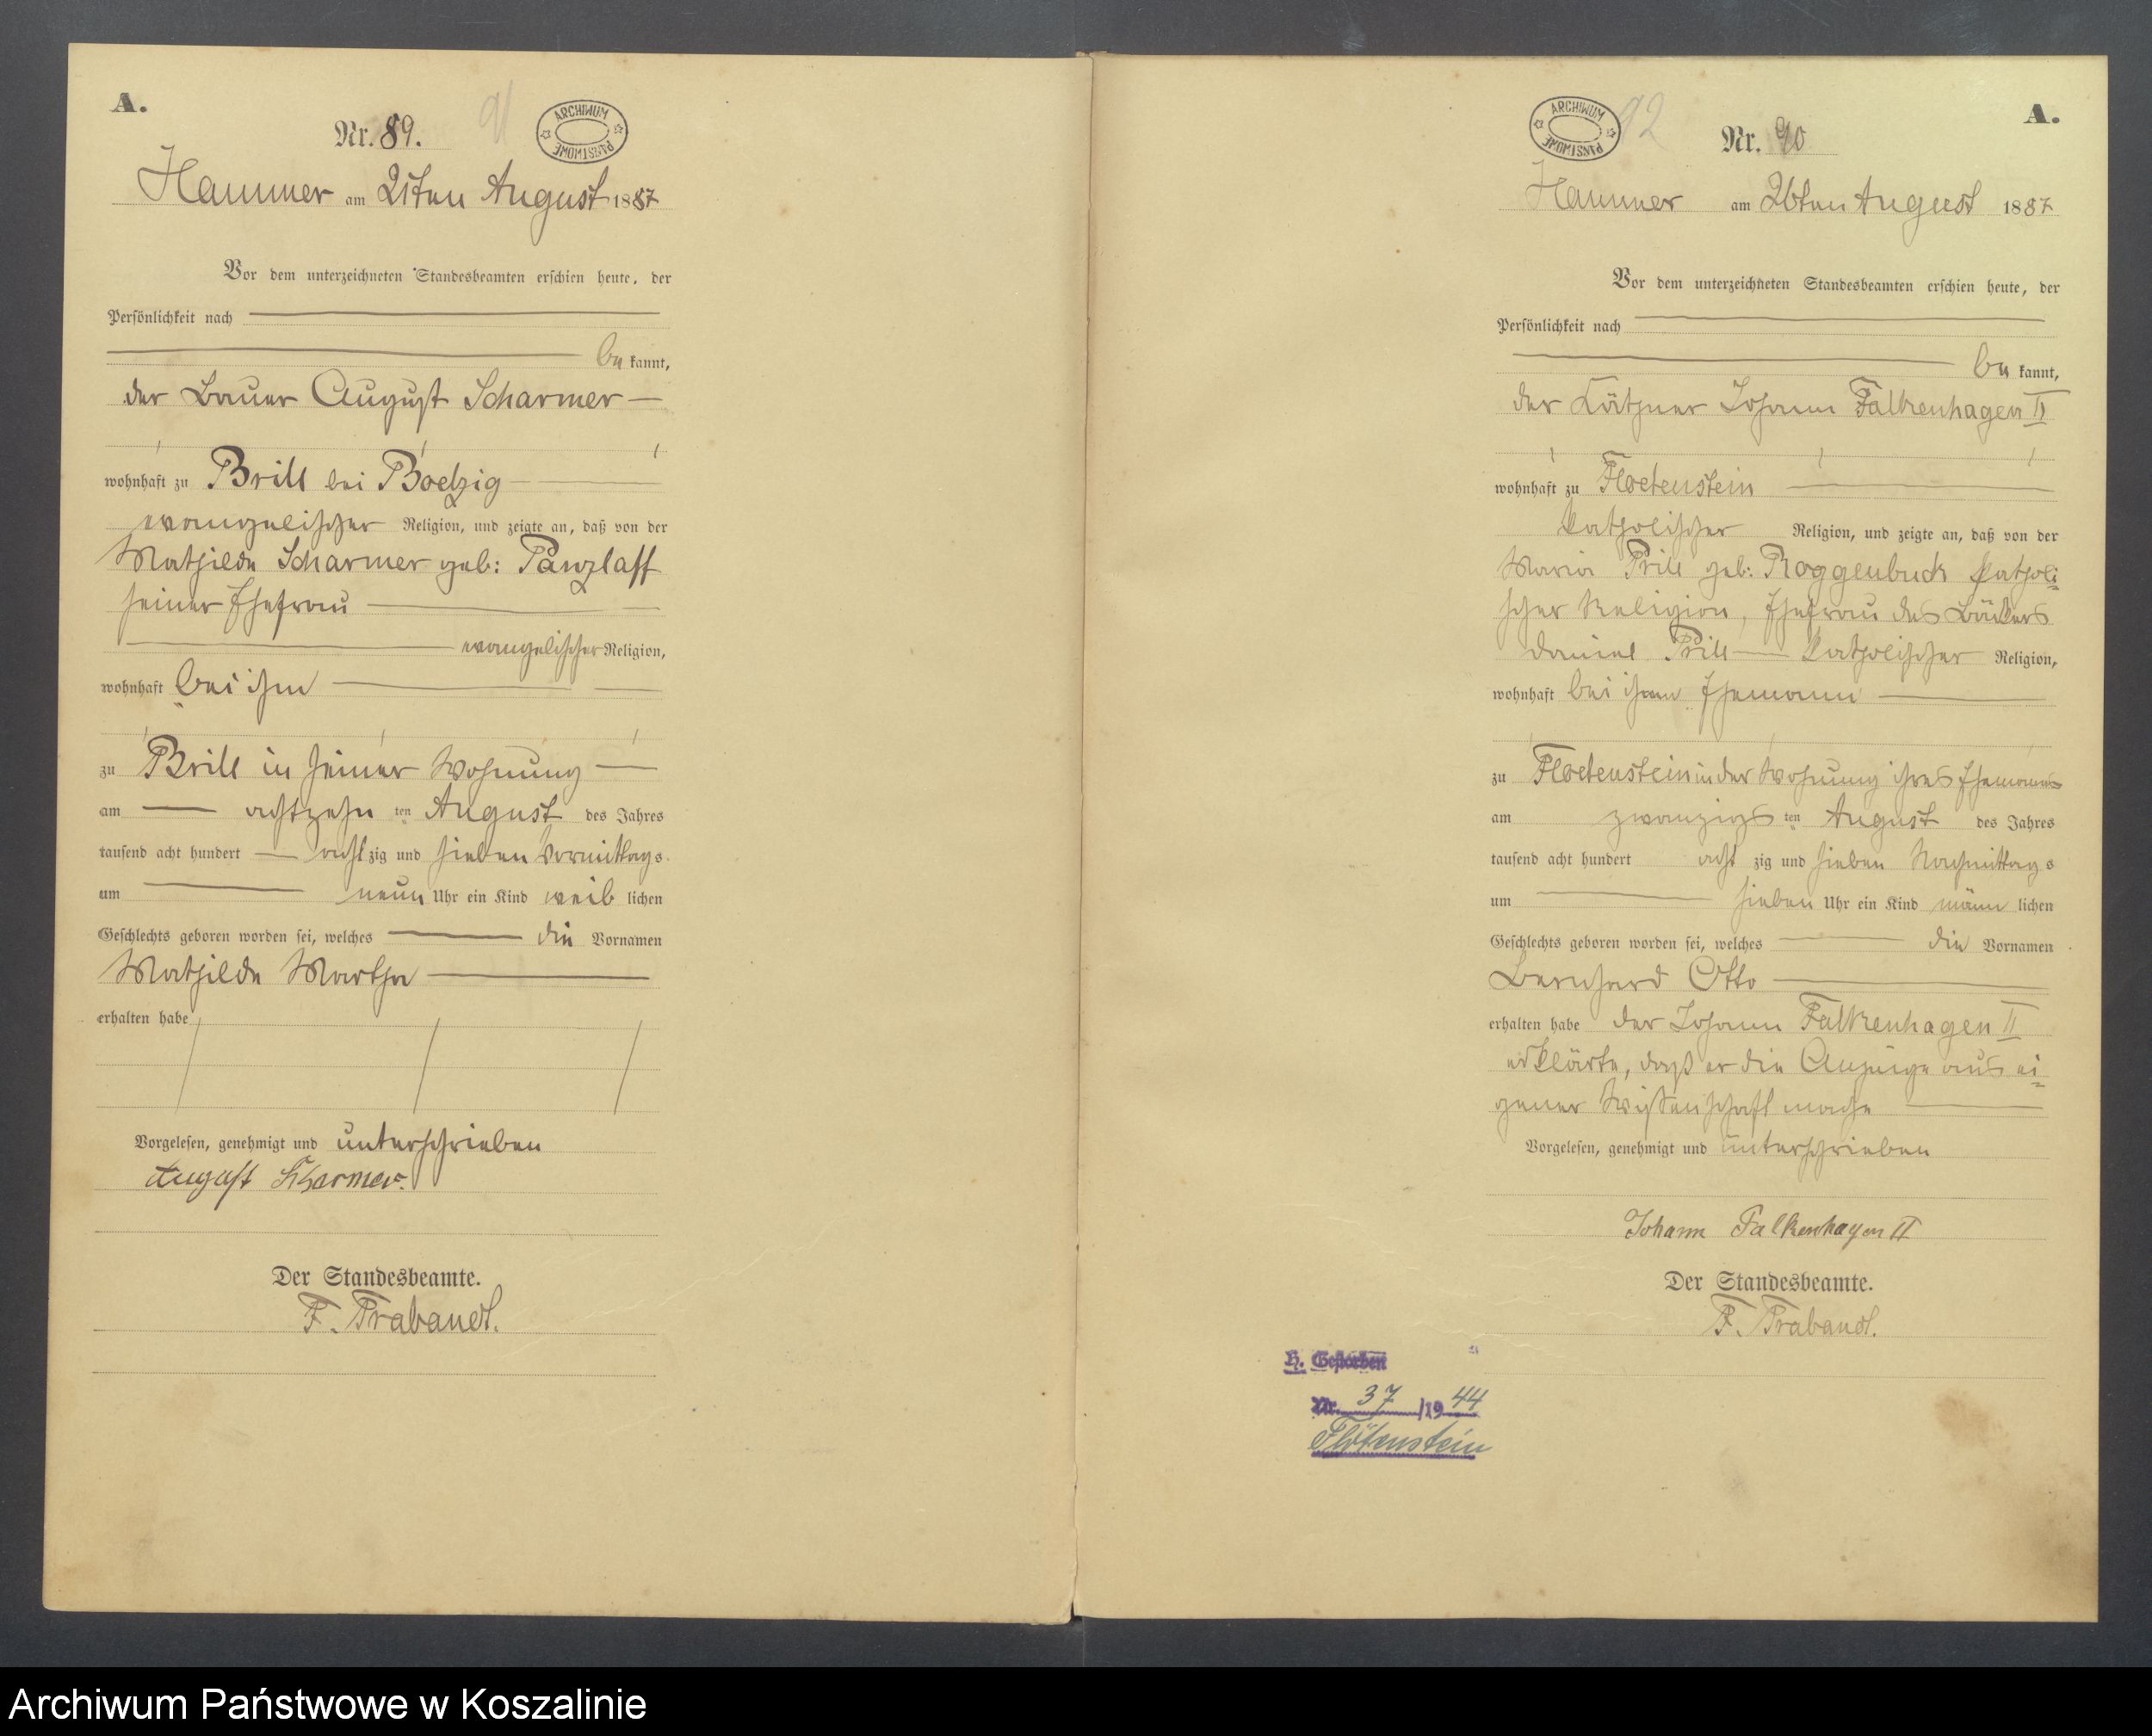 A.
Nr. 89.
91
ARCHIWUM PAŃSTWOWE
Hammer am 21ten August 1887
Vor dem unterzeichneten Standesbeamten erschien heute, der
Persönlichkeit nach
be kannt,
der Bauer August Scharmer
wohnhaft zu Brill bei Boelzig
evangelischer Religion, und zeigte an, daß von der
Mathilde Scharmer geb: Panzlaff
seiner Ehefrau
evangelischer Religion,
wohnhaft bei ihm
zu Brill in seiner Wohnung
am achtzehn ten August des Jahres
tausend acht hundert acht zig und sieben Vormittags
um neun Uhr ein Kind weib lichen
Geschlechts geboren worden sei, welches die Vornamen
Mathilde Martha
erhalten habe
Vorgelesen, genehmigt und unterschrieben
August Scharmer.
Der Standesbeamte.
F. Trabandt.
ARCHIWUM PAŃSTWOWE
92
A.
Nr. 90
Hammer am 26ten August 1887
Vor dem unterzeichneten Standesbeamten erschien heute, der
Persönlichkeit nach
be kannt,
der Käthner Johann Falkenhagen II
wohnhaft zu Floetenstein
katholischer Religion, und zeigte an, daß von der
Maria Prill geb: Roggenbuck katholi-
scher Religion, Ehefrau des Bäckers
Daniel Prill katholischer Religion,
wohnhaft bei ihrem Ehemann
zu Floetenstein in der Wohnung ihres Ehemanns
am zwanzigs ten August des Jahres
tausend acht hundert acht zig und sieben Nachmittags
um sieben Uhr ein Kind männ lichen
Geschlechts geboren worden sei, welches die Vornamen
Bernhard Otto
erhalten habe der Johann Falkenhagen II
erklärte, daß er die Anzeige aus ei-
gener Wissenschaft mache
Vorgelesen, genehmigt und unterschrieben
Johann Falkenhagen II
Der Standesbeamte.
F. Trabandt.
H. Gestorben
Nr. 37 /19 44
Flötenstein
Archiwum Państwowe w Koszalinie